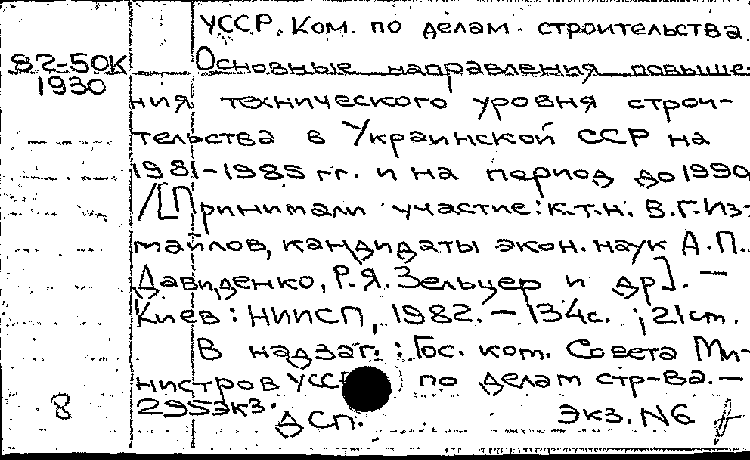 УССР. Ком. по делам строительства.
82-50К
Основные направления повыше-
1930
ния технического уровня строи-
тельства в Украинской ССР на
1981-1985 гг. и на период до 1990
/[Принимали участие: к.т.н. В.Г.Из-
майлов, кандидаты экон. наук А.П.
Давиденко, Р.Я. Зельцер и др]. —
Киев: НИИСП, 1982. — 134с. ; 21см.
В надзаг.: Гос. ком. Совета Ми-
нистров УССР по делам стр-ва. —
295экз.
8
ДСП.
Экз. N6